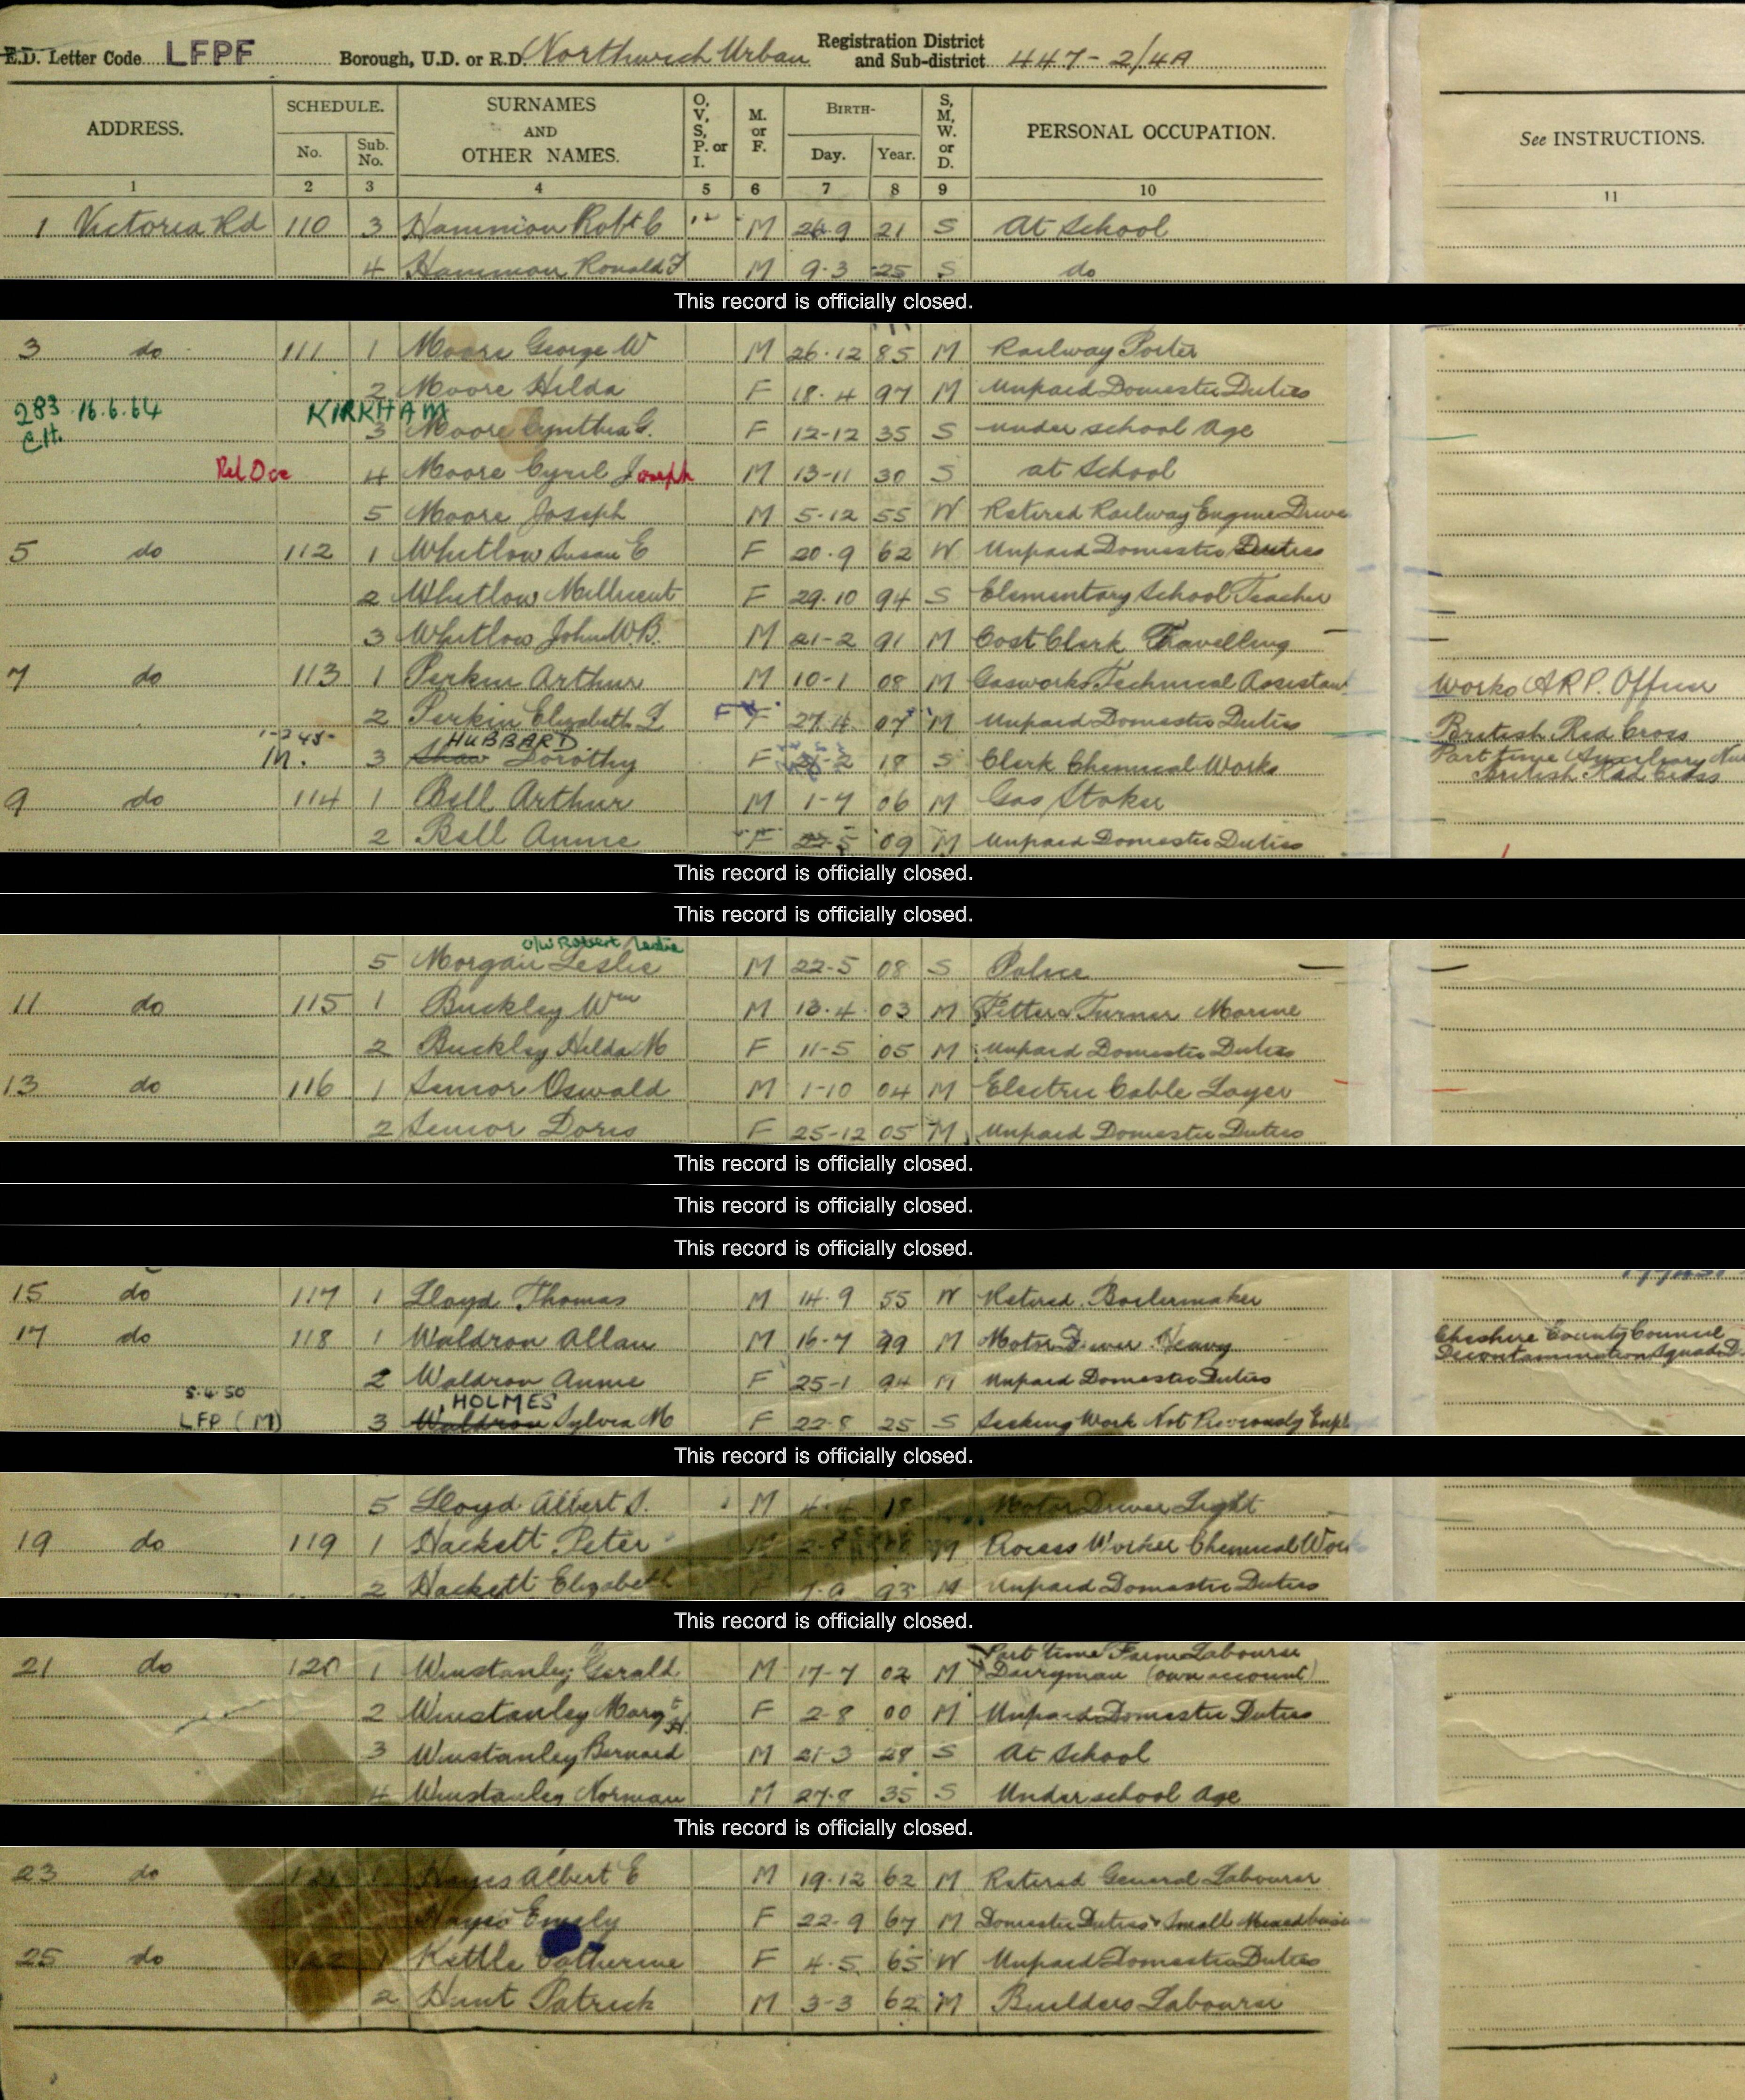 E.D. Letter Code LFPF Borough, U.D. or R.D. Northwich Urban Registration District and Sub-district 447-2/4A
ADDRESS. SCHEDULE. No. Sub. No. SURNAMES AND OTHER NAMES. O, V, S, P. or I. M. or F. BIRTH- Day. Year. S, M, W. or D. PERSONAL OCCUPATION. See INSTRUCTIONS.
1 2 3 4 5 6 7 8 9 10 11
1 Victoria Rd 110 3 Hammion Robt C M 26-9 21 S At School
4 Hammion Ronald F M 9-3 25 S do
This record is officially closed.
3 do 111 1 Moore George W M 26-12 85 M Railway Porter
2 Moore Hilda F 18-4 97 M Unpaid Domestic Duties
283 16.6.64 KIRKHAM
C.H. 3 Moore Cynthia G. F 12-12 35 S under school Age
Rel Oce 4 Moore Cyril Joseph M 13-11 30 S at School
5 Moore Joseph M 5-12 55 W Retired Railway Engine Drive
5 do 112 1 Whitlow Susan E F 20-9 62 W Unpaid Domestic Duties
2 Whitlow Millicent F 29-10 94 S Elementary School Teacher
3 Whitlow John W B. M 21-2 91 M Cost Clerk Travelling
7 do 113 1 Perkin Arthur M 10-1 08 M Gasworks Technical Assistant Works A.R.P. Officer
2 Perkin Elizabeth L F 27-4 07 M Unpaid Domestic Duties British Red Cross
1-2-45 HUBBARD
M. 3 Shaw Dorothy F 18 S Clerk Chemical Works Part time Auxiliary Nur British Red Cross
9 do 114 1 Bell Arthur M 1-7 06 M Gas Stoker
2 Bell Annie F 22-5 09 M Unpaid Domestic Duties
This record is officially closed.
This record is officially closed.
O/W Robert Leslie
5 Morgan Leslie M 22-5 08 S Police
11 do 115 1 Buckley Wm M 13-4 03 M Fitter & Turner Marine
2 Buckley Hilda M F 11-5 05 M Unpaid Domestic Duties
13 do 116 1 Senior Oswald M 1-10 04 M Electric Cable Layer
2 Senior Doris F 25-12 05 M Unpaid Domestic Duties
This record is officially closed.
This record is officially closed.
This record is officially closed.
15 do 117 1 Lloyd Thomas M 14-9 55 W Retired Boilermaker
17 do 118 1 Waldron Allan M 16-7 99 M Motor Driver Heavy Cheshire County Council Decontamination Squad D.
2 Waldron Annie F 25-1 94 M Unpaid Domestic Duties
5.4.50 HOLMES
LFP (M) 3 Waldron Sylvia M F 22-8 25 S Seeking Work Not Previously Empl
This record is officially closed.
5 Lloyd Albert S. M 4-4 18 Motor Driver Light
19 do 119 1 Hackett Peter M M Process Worker Chemical Work
2 Hackett Elizabeth F 7-9 93 M Unpaid Domestic Duties
This record is officially closed.
Part time Farm Labourer
21 do 120 1 Winstanley Gerald M 17-7 02 M Dairyman (own account)
2 Winstanley Margt H. F 2-8 00 M Unpaid Domestic Duties
3 Winstanley Bernard M 21-3 28 S At School
4 Winstanley Norman M 27-8 35 S Under school Age
This record is officially closed.
23 do 121 1 Hayes Albert E M 19-12 62 M Retired General Labourer
Hayes Emily F 22-9 67 M Domestic Duties & Small Mixed busi
25 do 122 1 Kettle Catherine F 4-5 65 W Unpaid Domestic Duties
2 Hunt Patrick M 3-3 62 M Builders Labourer